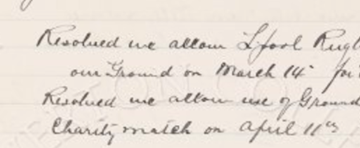 Resolved we allow L'pool Rugb
our Ground on March 14th for
Resolved we allow use of Ground
Charity match on April 11th